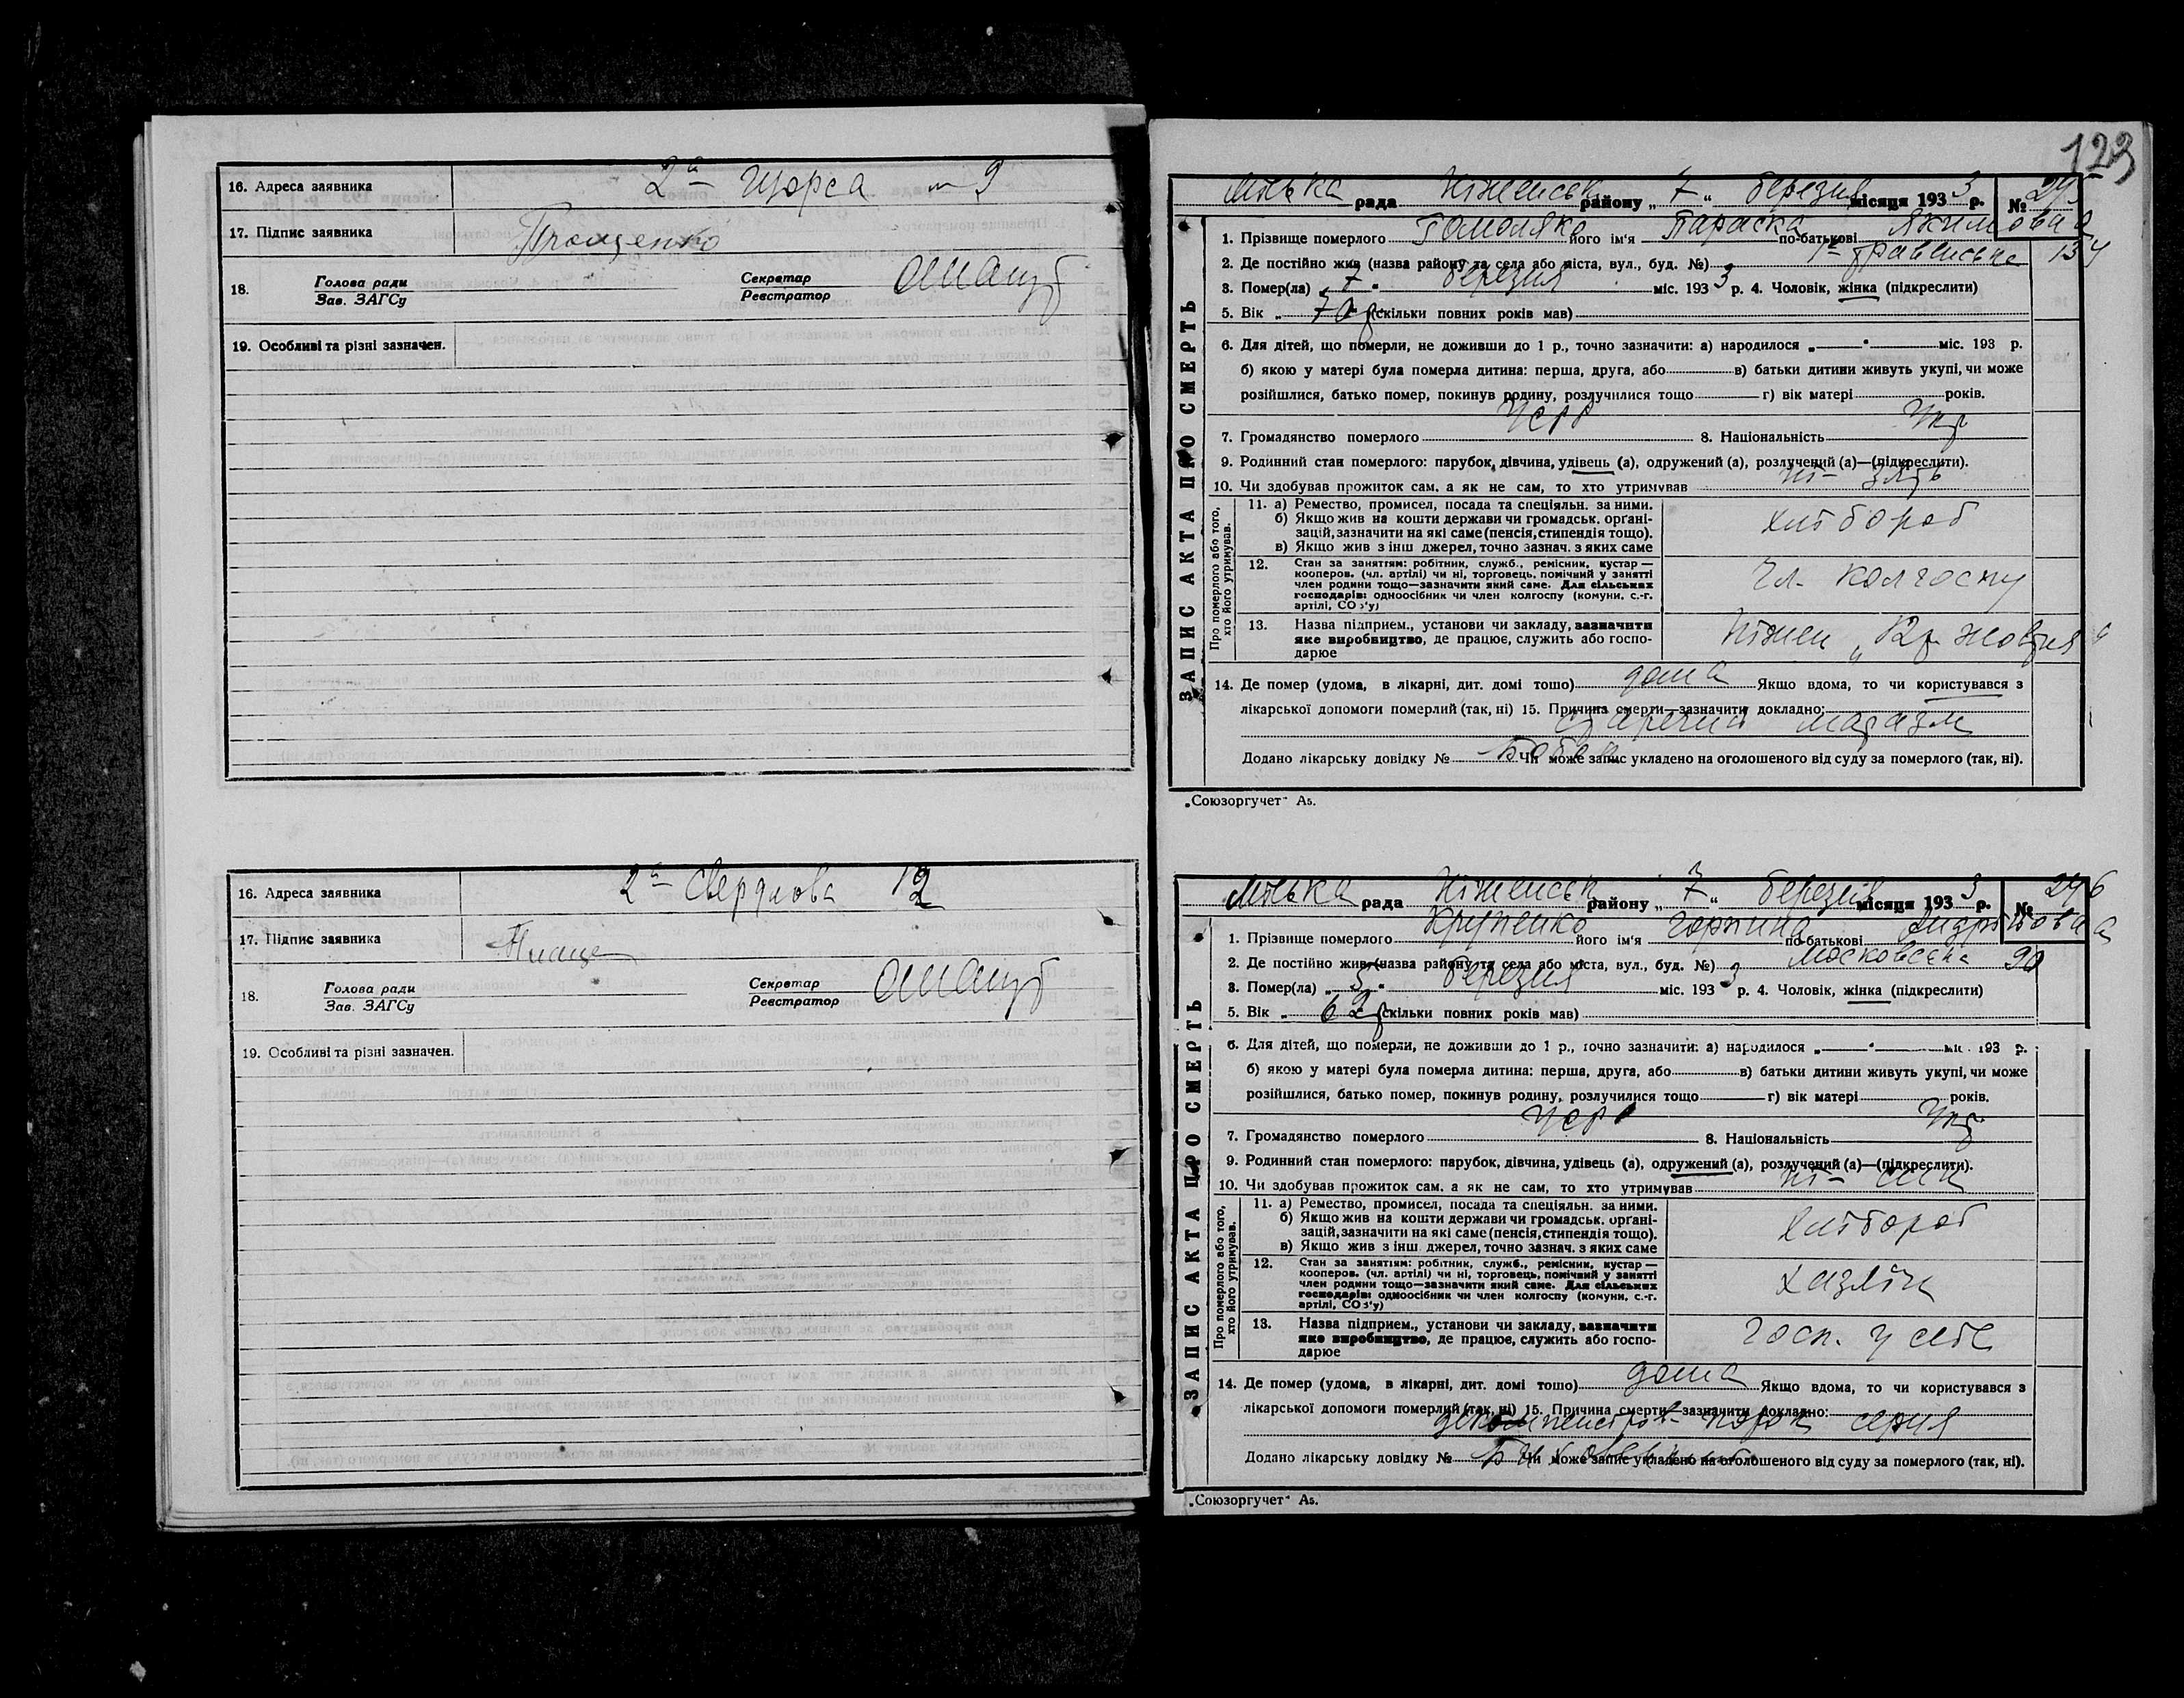 16. Адреса заявника 2а Щорса 9
17. Підпис заявника
18. Голова ради
Зав. ЗАГСу
Секретар
Реєстратор
19. Особливі та різні зазначен.
16. Адреса заявника 2а Свердлова 12
17. Підпис заявника
18. Голова ради
Зав. ЗАГСу
Секретар
Реєстратор
19. Особливі та різні зазначен.
123
ЗАПИС АКТА ПРО СМЕРТЬ
Міська рада Ніженськ району „ 7 “ березня місяця 1933 р. № 295
1. Прізвище померлого Гомоляко його ім'я Параска по-батькові Якимовна
2. Де постійно жив (назва району та села або міста, вул., буд. №) 134
3. Помер(ла) „ 7 “ березня міс. 1933 р. 4. Чоловік, жінка (підкреслити)
5. Вік „ 70 р (скільки повних років мав)
6. Для дітей, що померли, не доживши до 1 р., точно зазначити: а) народилося „ “ міс. 193 р.
б) якою у матері була померла дитина: перша, друга, або в) батьки дитини живуть укупі, чи може
розійшлися, батько помер, покинув родину, розлучилися тощо г) вік матері років.
7. Громадянство померлого УСРР 8. Національність Укр
9. Родинний стан померлого: парубок, дівчина, удівець (а), одружений (а), розлучений (а)—(підкреслити).
10. Чи здобував прожиток сам, а як не сам, то хто утримував ні - зять
Про померлого або того, хто його утримував.
11. а) Ремество, промисел, посада та спеціяльн. за ними.
б) Якщо жив на кошти держави чи громадськ. орґані-
зацій, зазначити на які саме (пенсія, стипендія тощо).
в) Якщо жив з інш джерел, точно зазнач. з яких саме
хлібороб
12. Стан за заняттям: робітник, служб., ремісник, кустар—
кооперов. (чл. артілі) чи ні, торговець, помічний у занятті
член родини тощо—зазначити який саме. Для сільських
господарів: одноосібник чи член колгоспу (комуни, с.-г.
артілі, СОЗ'у)
Чл. колгоспу
13. Назва підприєм., установи чи закладу, зазначити
яке виробництво, де працює, служить або госпо-
дарює
Ніжен „Кр. жовтня“
14. Де помер (удома, в лікарні, дит. домі тощо) дома Якщо вдома, то чи користувався з
лікарської допомоги померлий (так, ні) 15. Причина смерти—зазначити докладно:
старечий маразм
Додано лікарську довідку № Чи може запис укладено на оголошеного від суду за померлого (так, ні).
„Союзоргучет“ А5.
ЗАПИС АКТА ПРО СМЕРТЬ
Міська рада Ніженськ району „ 7 “ березня місяця 1933 р. № 296
1. Прізвище померлого Крупенко його ім'я Горпина по-батькові Андріївна
2. Де постійно жив (назва району та села або міста, вул., буд. №) Московська 90
3. Помер(ла) „ 5 “ березня міс. 1933 р. 4. Чоловік, жінка (підкреслити)
5. Вік „ 62 р (скільки повних років мав)
6. Для дітей, що померли, не доживши до 1 р., точно зазначити: а) народилося „ “ міс. 193 р.
б) якою у матері була померла дитина: перша, друга, або в) батьки дитини живуть укупі, чи може
розійшлися, батько помер, покинув родину, розлучилися тощо г) вік матері років.
7. Громадянство померлого УСРР 8. Національність Укр
9. Родинний стан померлого: парубок, дівчина, удівець (а), одружений (а), розлучений (а)—(підкреслити).
10. Чи здобував прожиток сам, а як не сам, то хто утримував ні - син
Про померлого або того, хто його утримував.
11. а) Ремество, промисел, посада та спеціяльн. за ними.
б) Якщо жив на кошти держави чи громадськ. орґані-
зацій, зазначити на які саме (пенсія, стипендія тощо).
в) Якщо жив з інш джерел, точно зазнач. з яких саме
хлібороб
12. Стан за заняттям: робітник, служб., ремісник, кустар—
кооперов. (чл. артілі) чи ні, торговець, помічний у занятті
член родини тощо—зазначити який саме. Для сільських
господарів: одноосібник чи член колгоспу (комуни, с.-г.
артілі, СОЗ'у)
хазяїн
13. Назва підприєм., установи чи закладу, зазначити
яке виробництво, де працює, служить або госпо-
дарює
госп. у себе
14. Де помер (удома, в лікарні, дит. домі тощо) дома Якщо вдома, то чи користувався з
лікарської допомоги померлий (так, ні) 15. Причина смерти—зазначити докладно:
порок серця
Додано лікарську довідку № Чи може запис укладено на оголошеного від суду за померлого (так, ні).
„Союзоргучет“ А5.